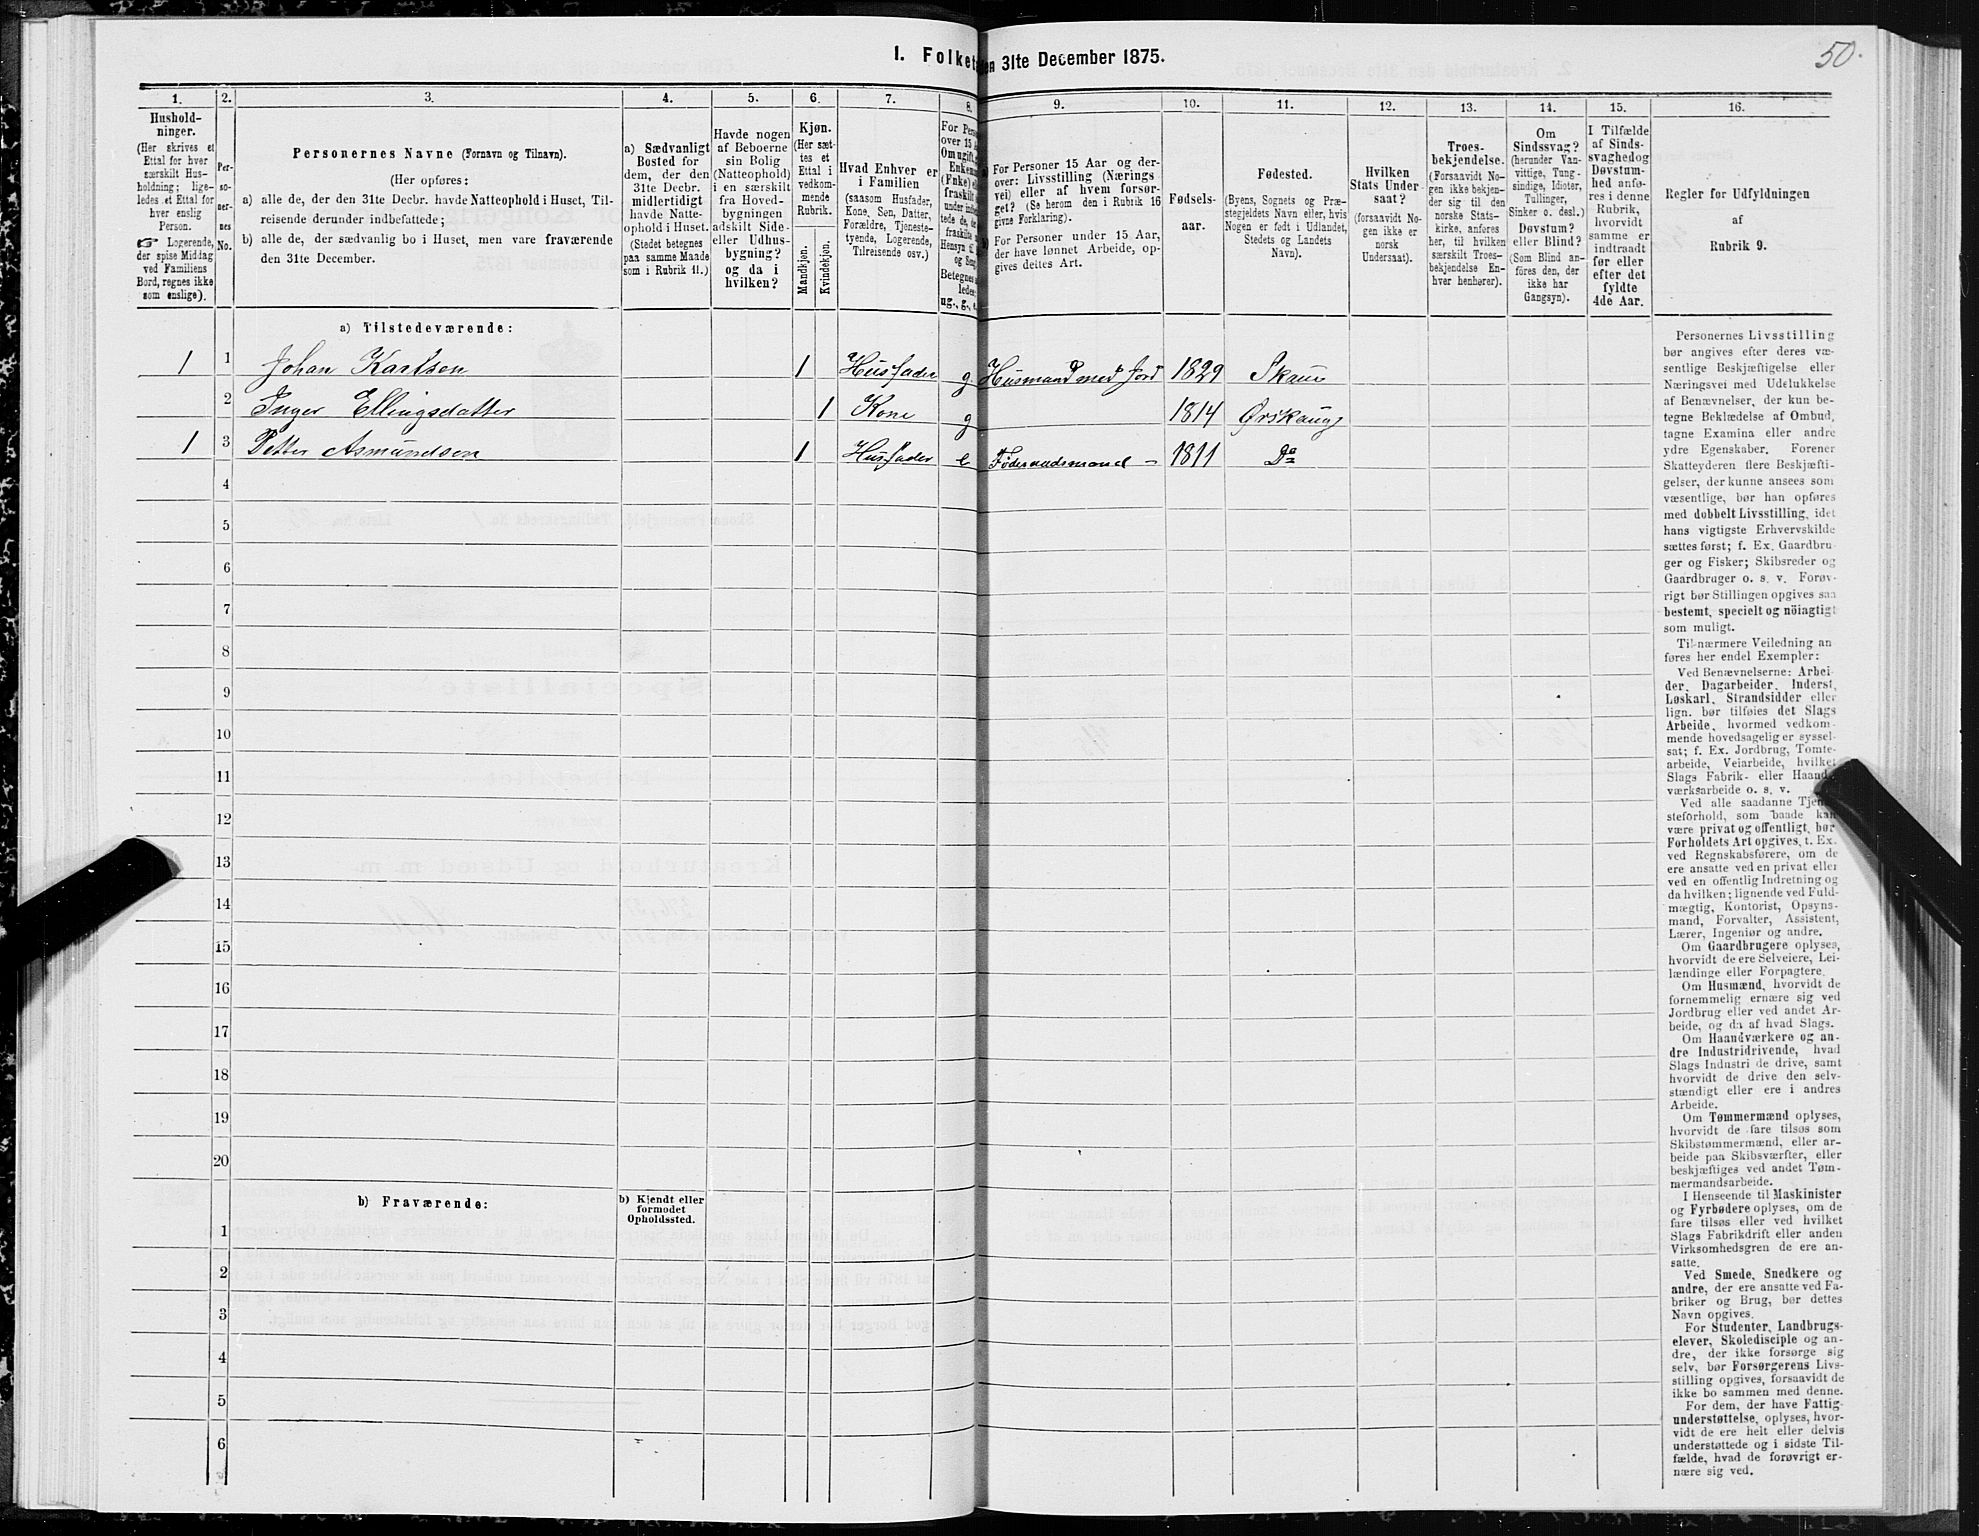 50.
I. Folket
en 31te December 1875.
1.
2.
3.
4.
5.
6.
7.
8.
9.
10.
11.
12.
13.
14.
15.
16.
Hushold-
ninger.
(Her skrives et
Ettal for hver
særskilt Hus-
holdning; lige-
ledes et Ettal for
hver enslig
Person.
☞ Logerende,
der spise Middag
ved Familiens
Bord, regnes ikke
som enslige).
Per-
so-
ner-
nes
No.
Personernes Navne (Fornavn og Tilnavn).
(Her opføres:
a) alle de, der den 31te Decbr. havde Natteophold i Huset, Til-
reisende derunder indbefattede;
b) alle de, der sædvanlig bo i Huset, men vare fraværende
den 31te December.
a) Sædvanligt
Bosted for
dem, der den
31te Decbr.
midlertidigt
havde Natte-
ophold i Huset.
(Stedet betegnes
paa samme Maade
som i Rubrik 11.)
Havde nogen
af Beboerne
sin Bolig
(Natteophold)
i en særskilt
fra Hoved-
bygningen
adskilt Side-
eller Udhus-
bygning?
og da i
hvilken?
Kjøn.
(Her sæt-
tes et
Ettal i
vedkom-
mende
Rubrik.
Mandkjøn.
Kvindekjøn.
Hvad Enhver er
i Familien
(saasom Husfader,
Kone, Søn, Datter,
Forældre, Tjeneste-
tyende, Logerende,
Tilreisende osv.)
For Pers
over 15 A
Om ugift,
Enkem
(Enke) el
fraskilt
under indb
tede de,
fraskilte
Hensyn ti
og Seng
Betegnes
ledes:
ug., g., e.
a) For Personer 15 Aar og der-
over: Livsstilling (Nærings-
vei) eller af hvem forsør-
get? (Se herom den i Rubrik 16
givne Forklaring).
b) For Personer under 15 Aar,
der have lønnet Arbeide, op-
gives dettes Art.
Fødsels-
aar.
Fødested.
(Byens, Sognets og Præ-
stegjeldets Navn eller, hvis
Nogen er født i Udlandet,
Stedets og Landets
Navn).
Hvilken
Stats Under-
saat?
(forsaavidt No-
gen ikke er
norsk
Undersaat).
Troes-
bekjendelse.
(Forsaavidt No-
gen ikke bekjen-
der sig til den
norske Stats-
kirke, anføres
her, til hvilken
særskilt Troes-
bekjendelse En-
hver henhører).
Om
Sindssvag?
(herunder Van-
vittige, Tung-
sindige, Idioter,
Tullinger,
Sinker o. desl.)
Døvstum?
eller Blind?
(Som Blind an-
føres den, der
ikke har
Gangsyn).
I Tilfælde
af Sinds-
svaghed og
Døvstum-
hed anfø-
res i denne
Rubrik,
hvorvidt
samme er
indtraadt
før eller
efter det
fyldte
4de Aar.
Regler for Udfyldningen
af
Rubrik 9.
a) Tilstedeværende:
1 1 Johan Karlsen 1 Husfader g. Husmand med Jord 1829 Skaun
2 Inger Ellingsdatter 1 Kone g 1814 Ørskaug
1 3 Petter Asmundsen 1 Husfader e Føderaadsmand - 1811 Do
4
5
6
7
8
9
10
11
12
13
14
15
16
17
18
19
20
b) Fraværende:
b) Kjendt eller
formodet
Opholdssted.
1
2
3
4
5
6
Personernes Livsstilling
bør angives efter deres væ-
sentlige Beskjæftigelse eller
Næringsvei med Udelukkelse
af Benævnelser, der kun be-
tegne Beklædelse af Ombud,
tagne Examina eller andre
ydre Egenskaber. Forener
Skatteyderen flere Beskjæfti-
gelser, der kunne ansees som
væsentlige, bør han opføres
med dobbelt Livsstilling, idet
hans vigtigste Erhvervskilde
sættes først; f. Ex. Gaardbru-
ger og Fisker; Skibsreder og
Gaardbruger o. s. v. Forøv-
rigt bør Stillingen opgives saa
bestemt, specielt og nöiagtigt
som muligt.
Til nærmere Veiledning an-
føres her endel Exempler:
Ved Benævnelserne: Arbei-
der, Dagarbeider, Inderst,
Løskarl, Strandsidder eller
lign. bør tilføies det Slags
Arbeide, hvormed vedkom-
mende hovedsagelig er syssel-
sat; f. Ex. Jordbrug, Tomte-
arbeide, Veiarbeide, hvilket
Slags Fabrik- eller Haand-
værksarbeide o. s. v.
Ved alle saadanne Tjene-
steforhold, som baade kan
være privat og offentligt, bør
Forholdets Art opgives, t. Ex.
ved Regnskabsførere, om de
ere ansatte ved en privat eller
ved en offentlig Indretning og
da hvilken; lignende ved Fuld-
mægtig, Kontorist, Opsyns-
mand, Forvalter, Assistent,
Lærer, Ingeniør og andre.
Om Gaardbrugere oplyses,
hvorvidt de ere Selveiere, Lei-
lændinge eller Forpagtere.
Om Husmænd, hvorvidt de
fornemmelig ernære sig ved
Jordbrug eller ved andet Ar-
beide, og da af hvad Slags.
Om Haandværkere og an-
dre Industridrivende, hvad
Slags Industri de drive, samt
hvorvidt de drive den selv-
stændigt eller ere i andres
Arbeide.
Om Tømmermænd oplyses,
hvorvidt de fare tilsøs som
Skibstømmermænd, eller ar-
beide paa Skibsværfter, eller
beskjæftiges ved andet Tøm-
mermandsarbeide.
I Henseende til Maskinister
og Fyrbødere oplyses, om de
fare tilsøs eller ved hvilket
Slags Fabrikdrift eller anden
Virksomhedsgren de ere an-
satte.
Ved Smede, Snedkere og
andre, der ere ansatte ved Fa-
briker og Brug, bør dettes
Navn opgives.
For Studenter, Landbrugs-
elever, Skoledisciple og an-
dre, der ikke forsørge sig
selv, bør Forsørgerens Livs-
stilling opgives, forsaavidt de
ikke bo sammen med denne.
For dem, der have Fattig-
understøttelse, oplyses, hvor-
vidt de ere helt eller delvis
understøttede og i sidste Til-
fælde, hvad de forøvrigt er-
nære sig ved.